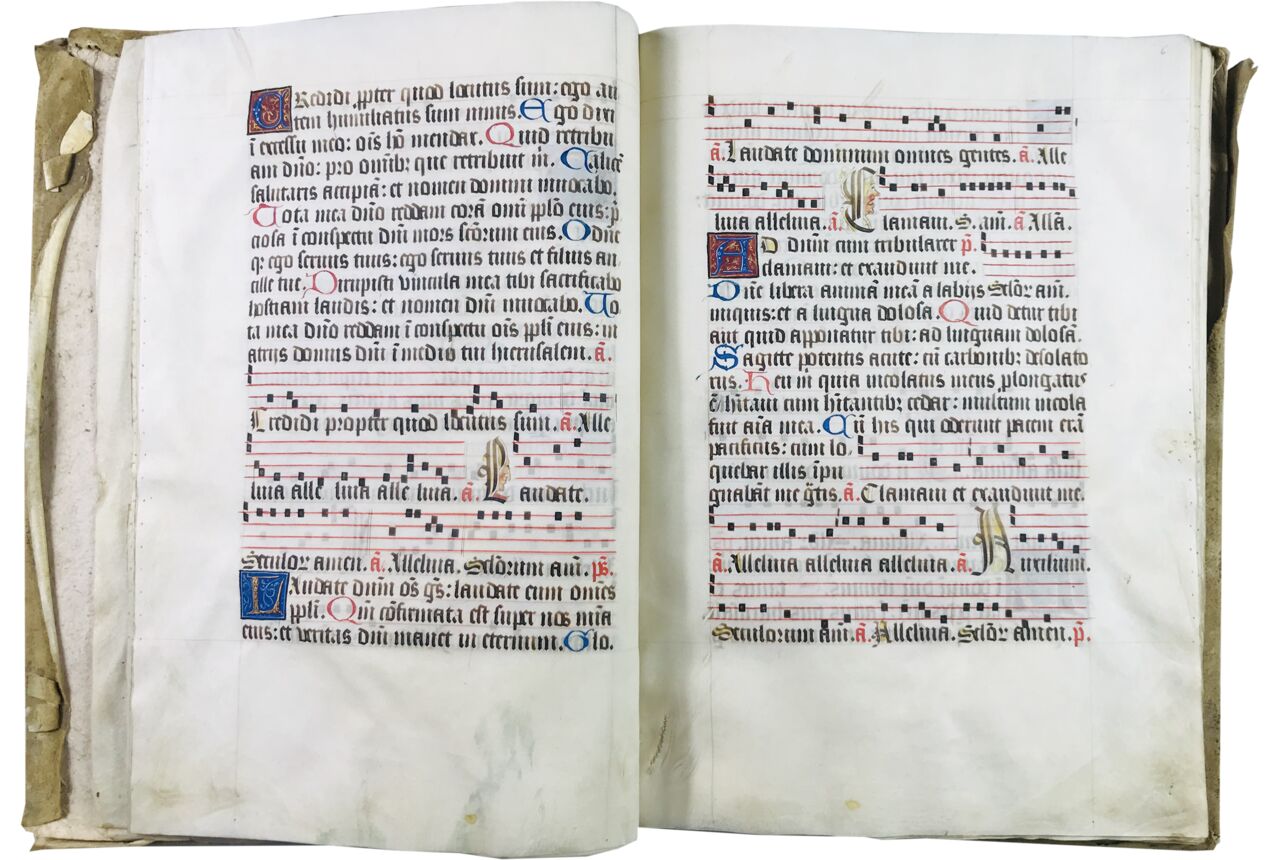 Credidi ꝓpter quod locutus sum: ego au
tem humiliatus sum nimis. Ego dixi
ī excessu meo: oīs hō mendax. Quid retribu
am dño: pro omībꝫ que retribuit m̄. Calicē
salutaris accipiā: et nomen domini inuocabo.
Uota mea dño reddam corā omī pplo eius: p̄
ciosa ī conspectu dn̄i mors sc̄orum eius. O dn̄e
qꝫ ego seruus tuus: ego seruus tuus et filius an
cille tue. Dirupisti vincula mea tibi sacrificabo
hostiam laudis: et nomen dn̄i inuocabo. Uo
ta mea dño reddam ī conspectu oīs ppl̄i eius: in
atrijs domus dn̄i ī medio tui hierusalem. ā.
Credidi propter quod locutus sum. ā. Alle
luia alle luia alle luia. ā. Laudate.
Seculoꝝ amen. ā. Alleluia. Seloꝝum am̄. p̄s.
Laudate dn̄m os̄ gs̄: laudate eum omnes
ppl̄i. Qm̄ cōfirmata est super nos mīa
eius: et veritas dn̄i manet in eternum. Glo.
6
ā. Laudate dominum omnes gentes. ā. Alle
luia alleluia. ā. Clamaui. S. am̄. ā Allā.
Ad dn̄m cum tribularer p̄.
clamaui: et exaudiuit me.
Dn̄e libera animā meā a labijs Seloꝝ am̄.
iniquis: et a lingua dolosa. Quid detur tibi
aut quid apponatur tibi: ad linguam dolosā.
Sagitte potentis acute: cū carbonibꝫ desolato
rijs. Heu m̄ quia incolatus meus ꝓlongatus
ē hītaui cum hītantibꝫ cedar: multum incola
fuit aīa mea. Cū his qui oderunt pacem erā
pacificus: cum lo
quebar illis īpu
gnabāt me gͣtis. ā. Clamaui et exaudiuit me.
ā. Alleluia alleluia alleluia. ā. Auxilium.
Seculorum am̄. ā. Alleluia. Seloꝝ amen. p̄.